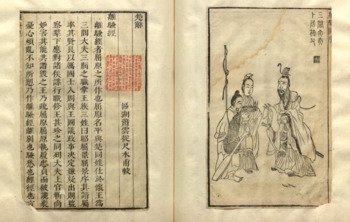 楚辭
區湖蕭雲從尺木甫較
離騷經
離騷經者屈原之所作也屈原名平與楚同姓仕於懷王為
三閭大夫三閭之職掌王族三姓曰昭屈景屈原序其譜屬
率其賢良以厲國士入則與王圖議政事決定嫌疑出則監
察羣下應對諸侯謀行職修王甚珍之同列大夫上官靳尚
妬害其能共譖毀之王乃疏屈原屈原執履忠貞而被讒邪
憂心煩亂不知所愬乃作離騷經離別也騷愁也經徑也
三閭大夫
卜居漁父